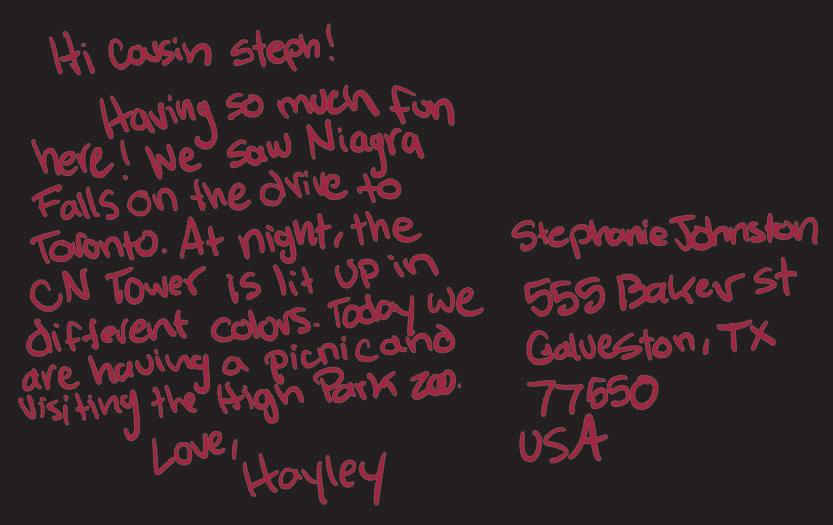 Hi Cousin Steph!
Having so much fun
here! We saw Niagra
Falls on the drive to
Toronto. At night, the
CN Tower is lit up in
different colors. Today we
are having a picnic and
visiting the High Park zoo.
Love,
Hayley
Stephanie Johnston
555 Baker St
Galveston, TX
77550
USA